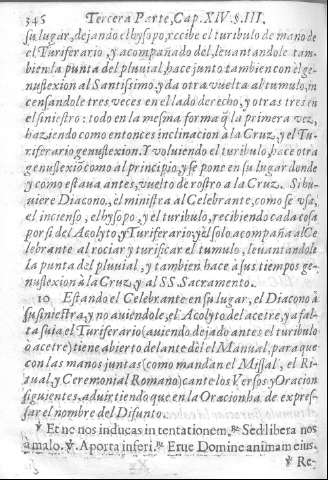 345 Tercera Parte, Cap. XIV. §. III.
su lugar, dejando el hysopo, recibe el turibulo de mano de
el Turiferario, y acompañado del, leuantandole tam-
bien la punta del pluuial, hace junto tambien con èl ge-
nuflexion al Santissimo, y da otra vuelta al tumulo, in
censandole tres veces en el lado derecho, y otras tres en
el siniestro: todo en la mesma forma q̃ la primera vez,
haziendo como entonces inclinacion à la Cruz, y el Tu-
riferario genuflexion. Y voluiendo el turibulo, hace otra
genuflexiõ como al principio, y se pone en su lugar donde
y como estaua antes, vuelto de rostro a la Cruz. Si hu-
uiere Diacono, èl ministra al Celebrante, como se vsa,
el incienso, el hysopo, y el turibulo, recibiendo cada cosa
por si del Acolyto, y Turiferario, y èl solo acompaña al Ce
lebrante al rociar y turificar el tumulo, leuantandole
la punta del pluuial, y tambien hace à sus tiempos ge-
nuflexion à la Cruz, y al SS. Sacramento.
10 Estando el Celebrante en su lugar, el Diacono à
su siniestra, y no auiendole, el Acolyto del acetre, y a fal-
ta suia el Turiferario (auiendo dejado antes el turibulo
o acetre) tiene abierto delante dèl el Manual, para que
con las manos juntas (como mandan el Missal, el Ri-
tual, y Ceremonial Romano) cante los Versos y Oracion
siguientes, aduirtiendo que en la Oracion ha de expres-
sar el nombre del Difunto.
℣ Et ne nos inducas in tentationem. ℟ Sed libera nos
à malo. ℣. A porta inferi. ℟ Erue Domine animam eius.
℣ Re-